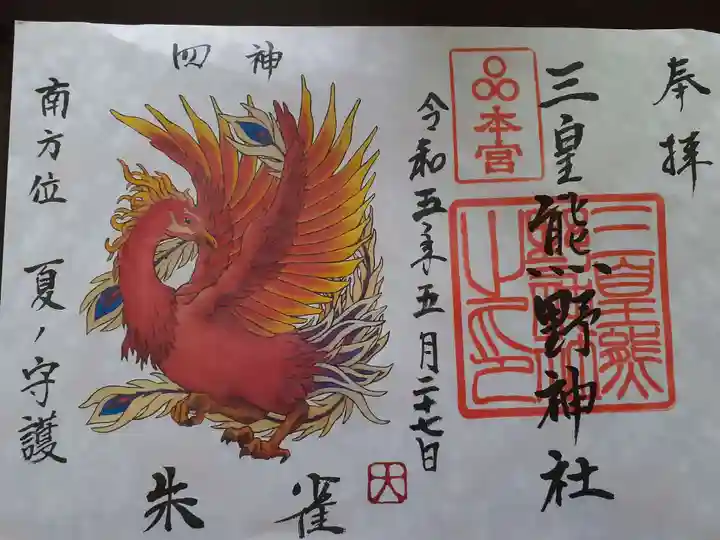 奉拝
三皇熊野神社
本宮
三皇熊
令和五年五月二十七日
四神
朱雀
南方位 夏ノ守護